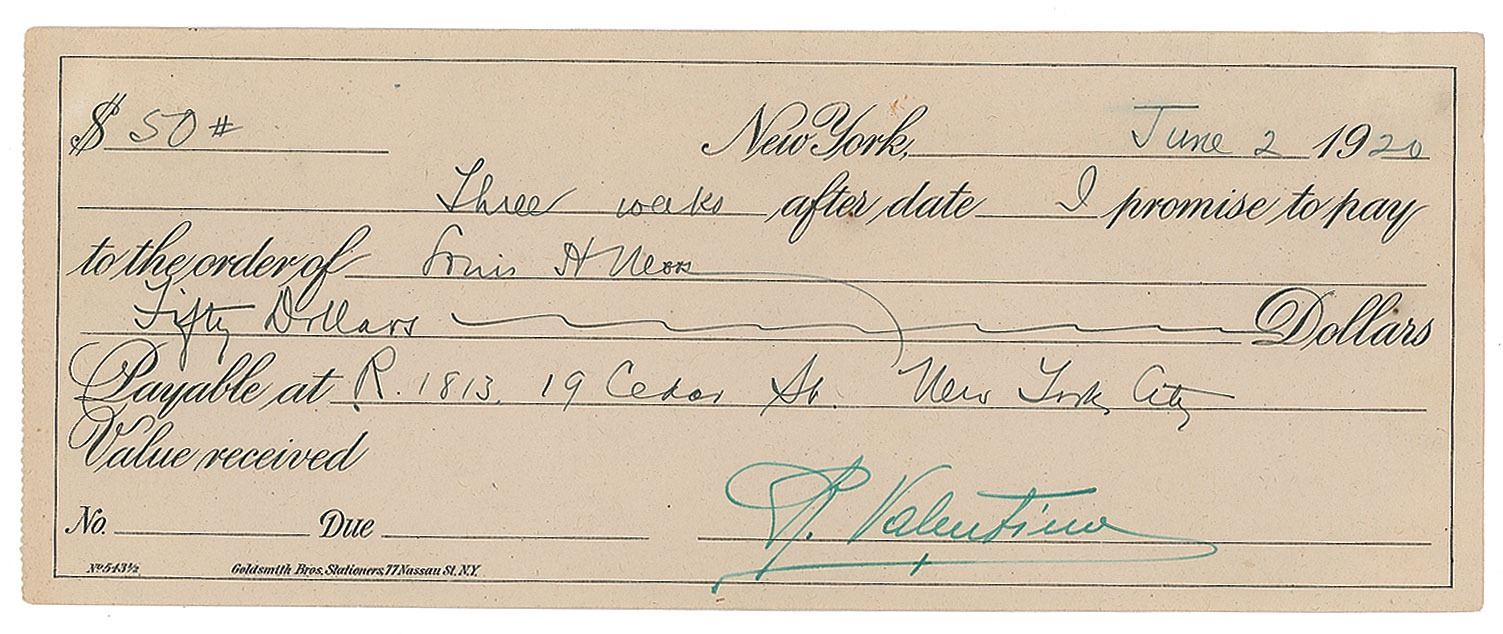 $ 50 # New York, June 2 1920
Three weeks after date I promise to pay
to the order of Louis H
Fifty Dollars Dollars
Payable at R. 1813. 19 Cedar St. New York City
Value received
R. Valentino
No. Due
No 543½ Goldsmith Bros. Stationers, 77 Nassau St. N.Y.